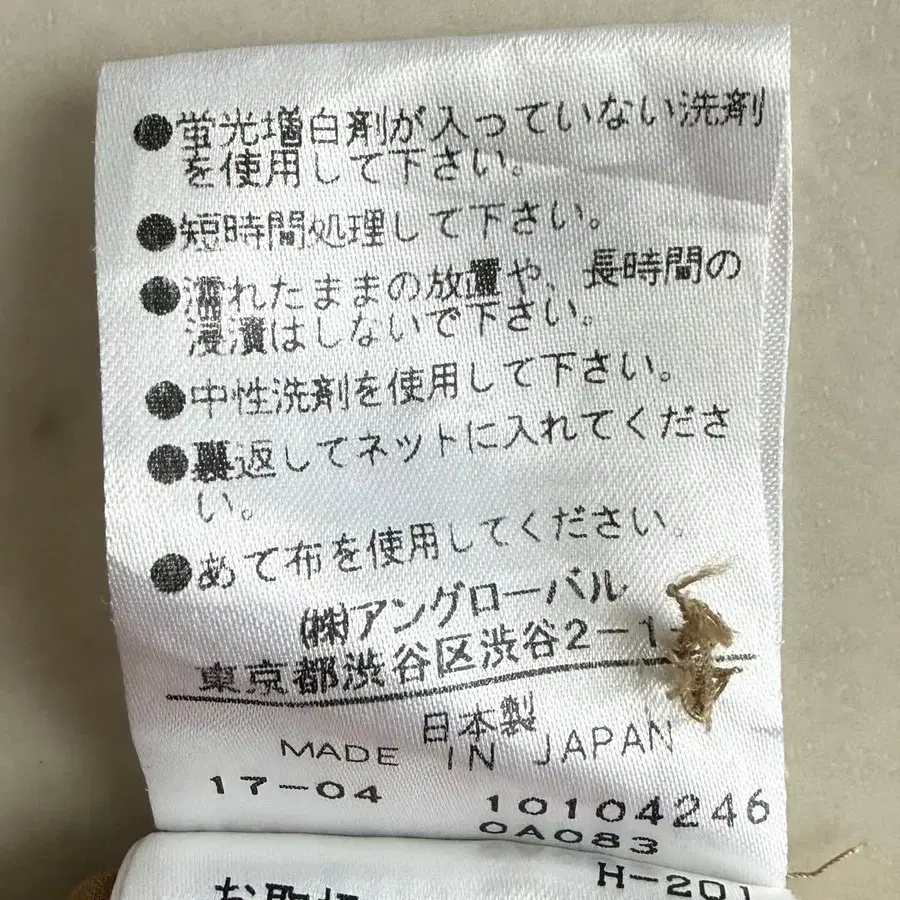 ●蛍光増白剤が入っていない洗剤
を使用して下さい。
●短時間処理して下さい。
●濡れたままの放置や、長時間の
浸漬はしないで下さい。
●中性洗剤を使用して下さい。
●裏返してネットに入れてくださ
い。
●あて布を使用してください。
(株)アングローバル
東京都渋谷区渋谷2-1-
日本製
MADE IN JAPAN
17-04 10104246
0A083
H-201